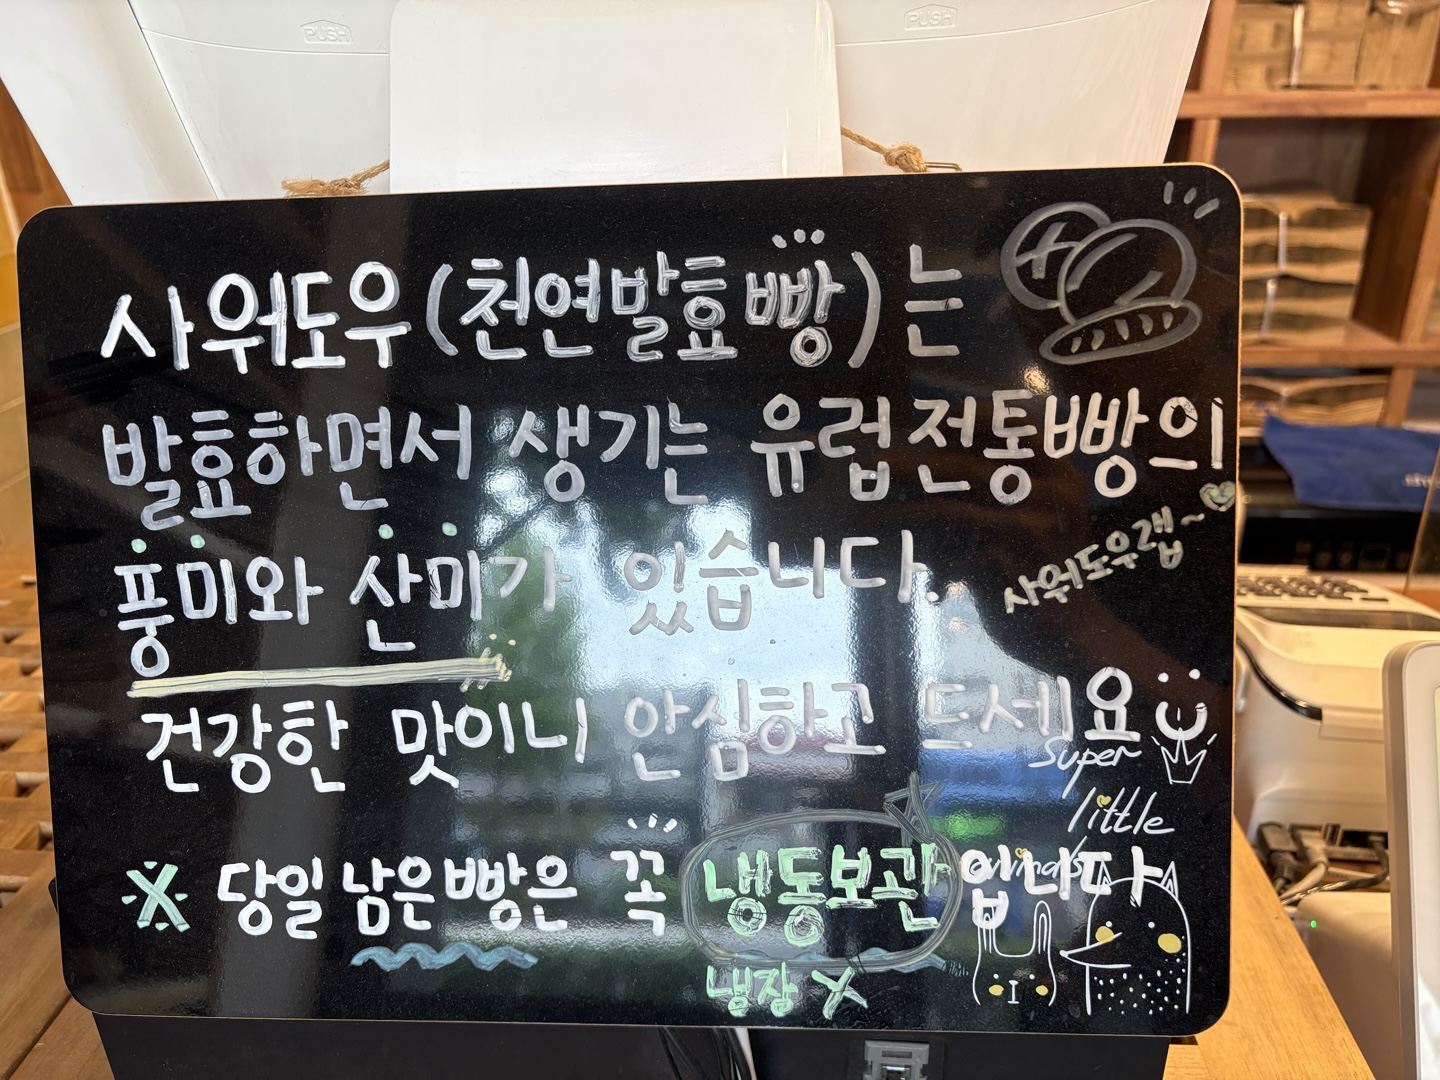 PUSH PUSH
사워도우(천연발효빵)는
발효하면서 생기는 유럽전통빵의
풍미와 산미가 있습니다.
사워도우랩~
건강한 맛이니 안심하고 드세요
super
little
animals
※ 당일 남은빵은 꼭 냉동보관 입니다
냉장 X